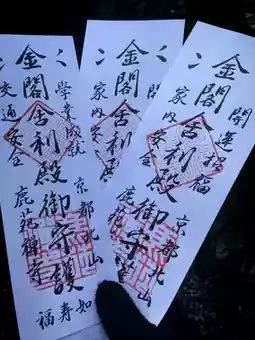 開運招福
京都北山
金閣舎利殿御守
家内安全
鹿苑
金閣舎利殿
家内安
学業成就
京都北山
金閣舎利殿御守護
交通安全
鹿苑禅寺
如
寿
福